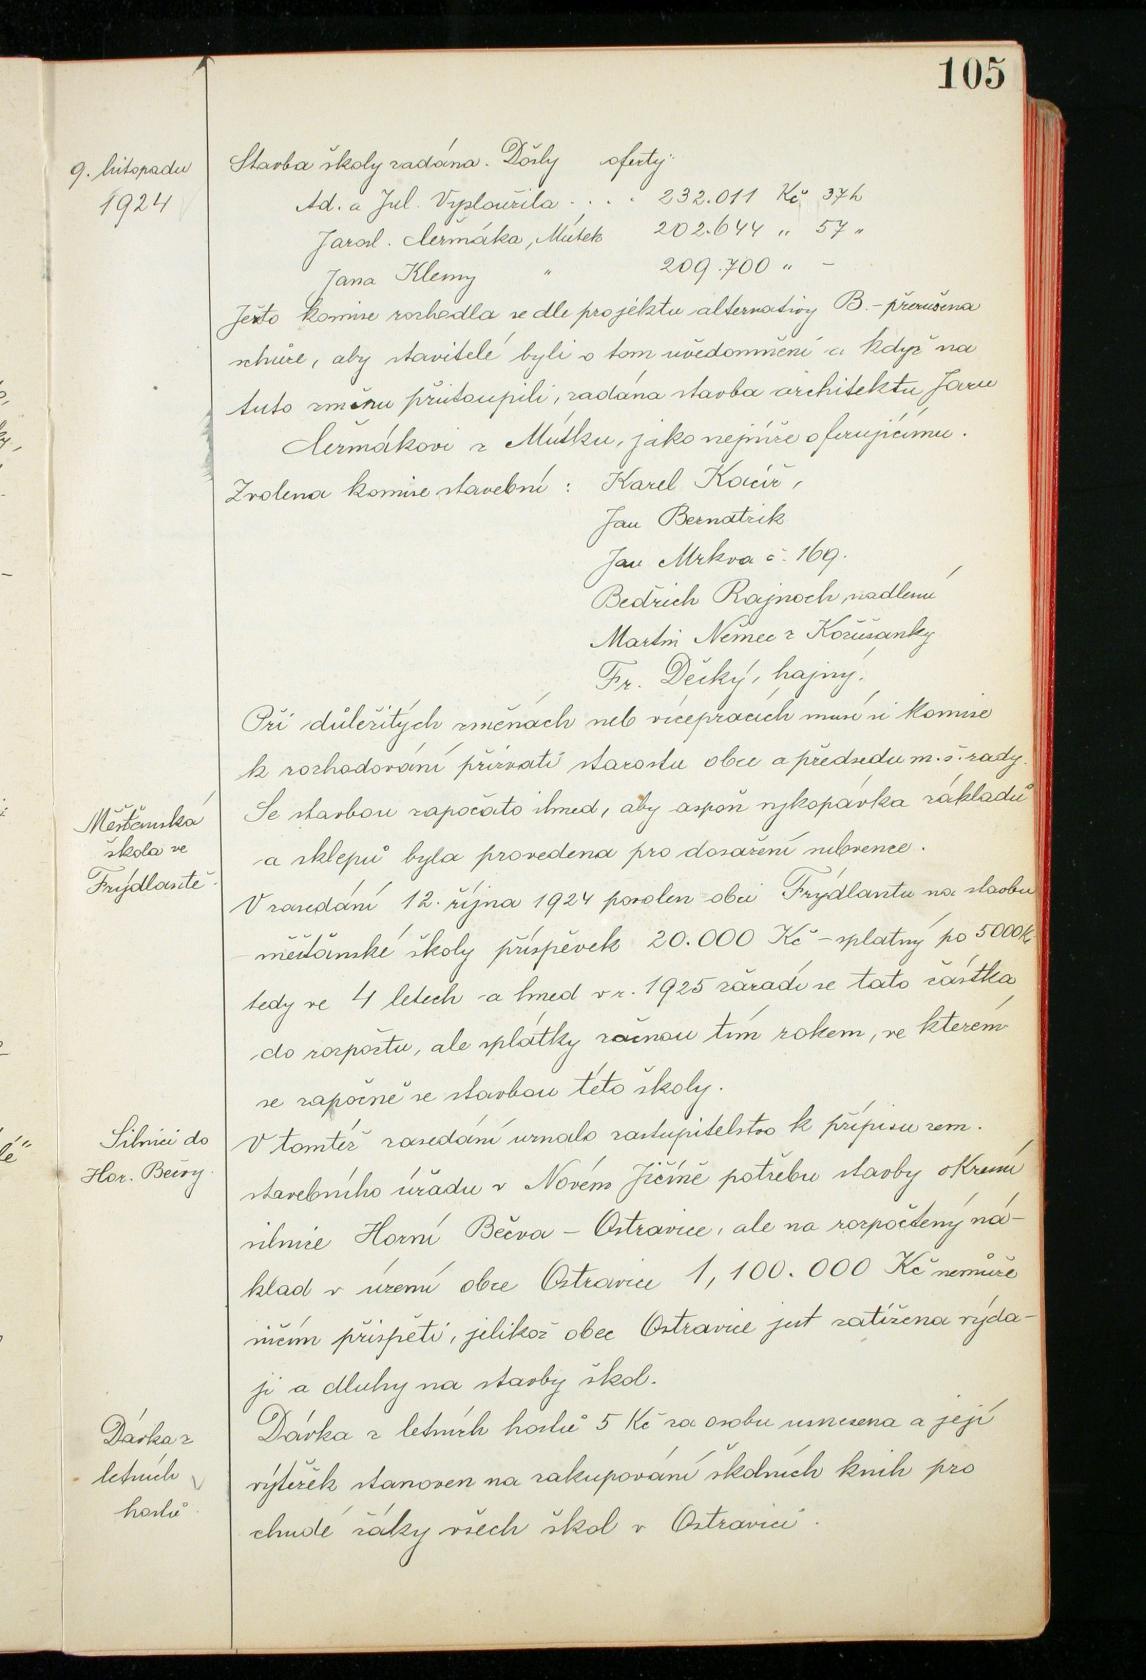 105
9. listopadu
1924
Stavba školy zadána. Došly oferty:
Ad. a Jul. Vyplouřila . . . . 232.011 Kč 37 h
Jarosl. Čermáka, Místek 202.644 „ 57 „
Jana Klemy „ 209.700 „ –
Ježto komise rozhodla se dle projektu alternativy B. – přerušena
schůze, aby stavitelé byli o tom uvědoměni a když na
tuto změnu přistoupili, zadána stavba architektu Jaru
Čermákovi z Místku, jako nejníže oferujícímu.
Zvolena komise stavební : Karel Kacíř,
Jan Bernatzik
Jan Mrkva č. 169.
Bedřich Rajnoch, nadlesní
Martin Němec z Kožušanky
Fr. Děcký, hajný.
Při důležitých změnách neb vícepracích musí si komise
k rozhodování přizvati starostu obce a předsedu m. š. rady.
Se stavbou započato ihned, aby aspoň vykopávka základů
a sklepů byla provedena pro dosažení subvence.
Měšťanská
škola ve
Frýdlantě.
V zasedání 12. října 1924 povolen obci Frýdlantu na stavbu
měšťanské školy příspěvek 20.000 Kč – splatný po 5000 Kč
tedy ve 4 letech a hned v r. 1925 zařadí se tato částka
do rozpočtu, ale splátky začnou tím rokem, ve kterém
se započne se stavbou této školy.
Silnici do
Hor. Bečvy.
V tomtéž zasedání uznalo zastupitelstvo k přípisu zem.
stavebního úřadu v Novém Jičíně potřebu stavby okresní
silnice Horní Bečva – Ostravice, ale na rozpočtený ná-
klad v území obce Ostravice 1,100.000 Kč nemůže
ničím přispěti, jelikož obec Ostravice jest zatížena výda-
ji a dluhy na stavby škol.
Dávka z
letních
hostů
Dávka z letních hostů 5 Kč za osobu usnesena a její
výtěžek stanoven na zakupování školních knih pro
chudé žáky všech škol v Ostravici.